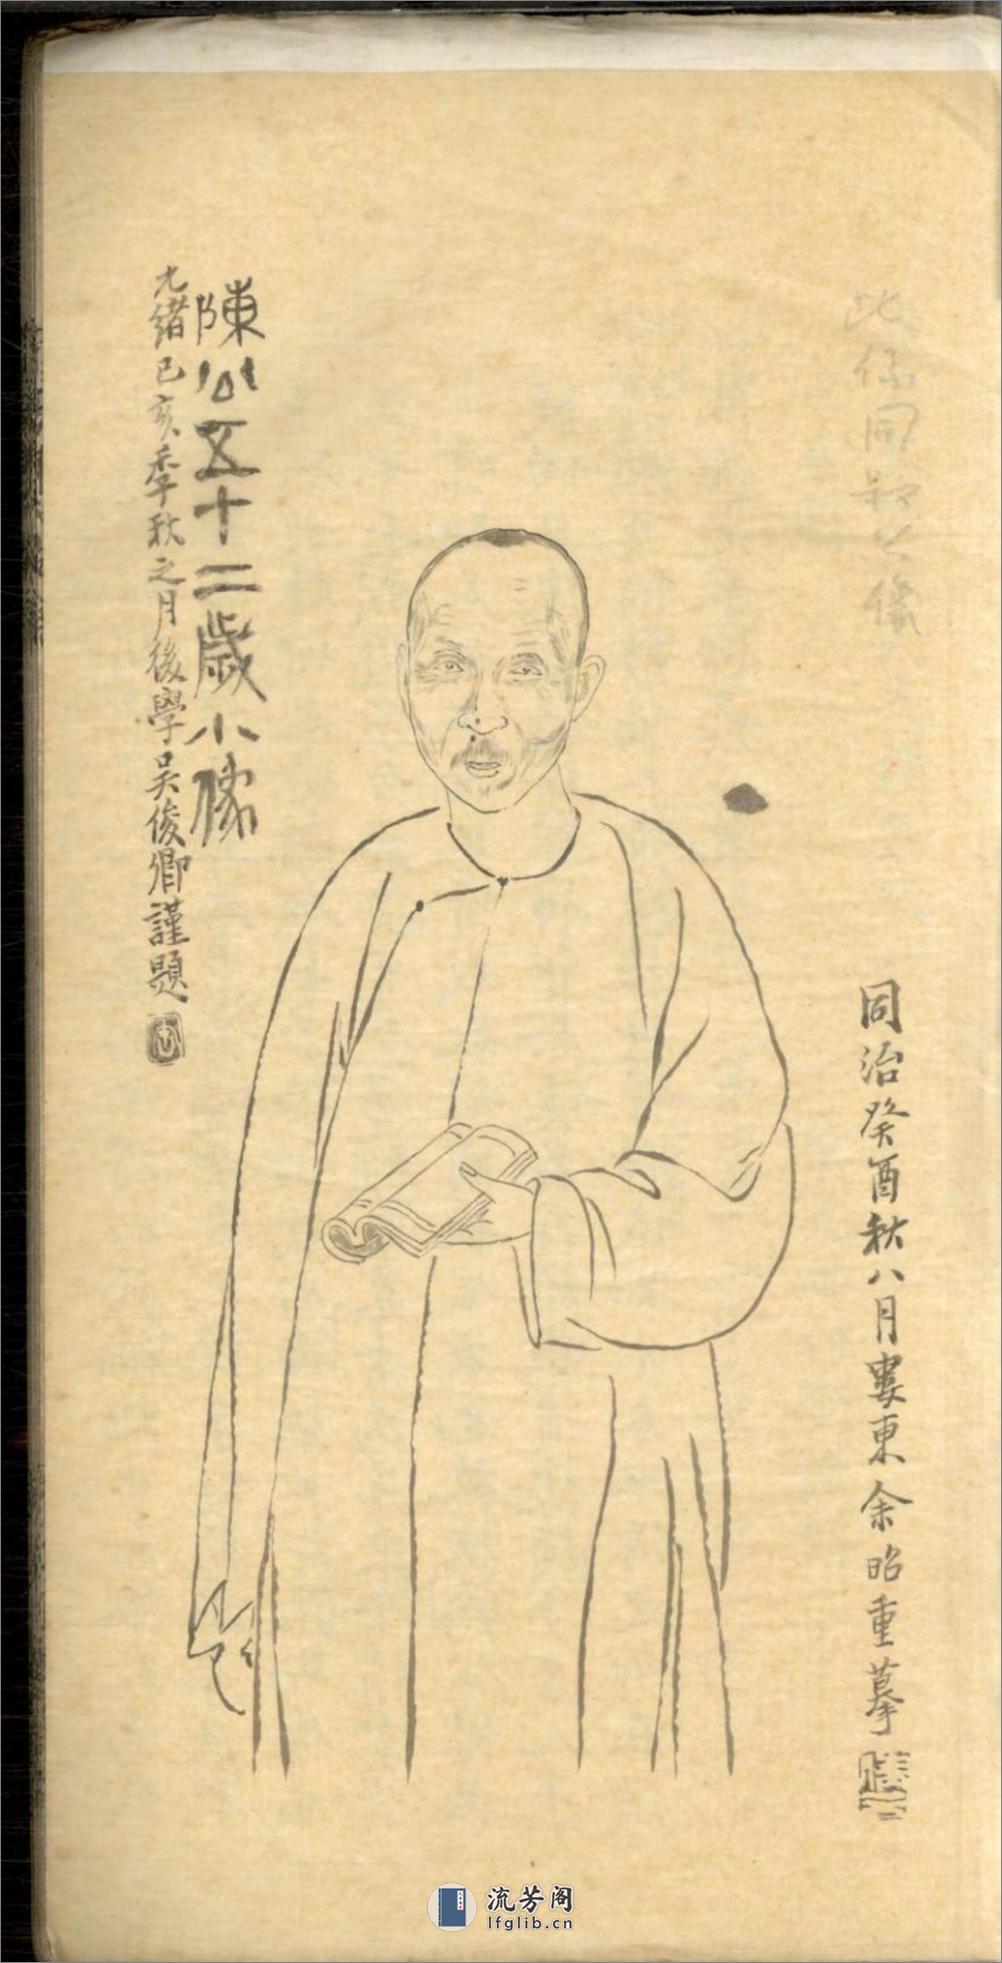 此係同叔公像
同治癸酉秋八月婁東余昭重摹
陳公五十二歲小像
光緒己亥季秋之月後學吳俊卿謹題
流芳阁
lfglib.cn